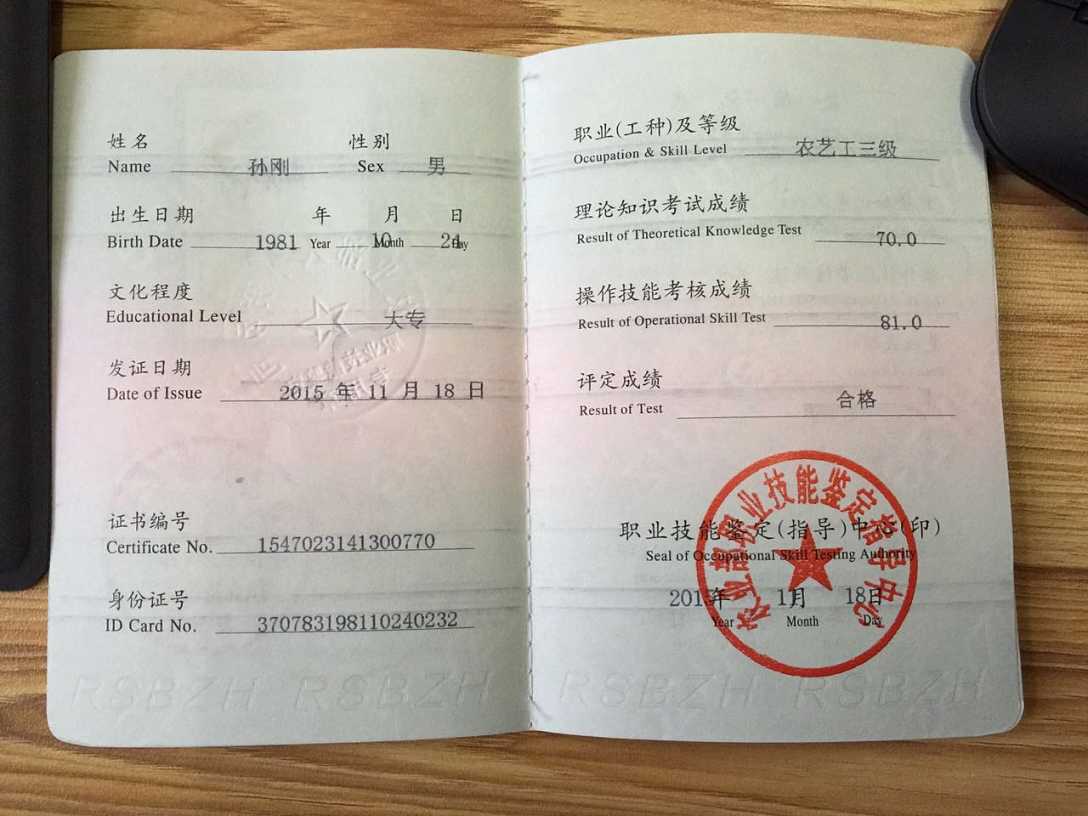 姓名 性别
Name 孙刚 Sex 男
出生日期 年 月 日
Birth Date 1981 Year 10 Month 24 Day
文化程度
Educational Level 大专
发证日期
Date of Issue 2015 年 11 月 18 日
证书编号
Certificate No. 1547023141300770
身份证号
ID Card No. 370783198110240232
RSBZH RSBZH
职业(工种)及等级
Occupation & Skill Level 农艺工三级
理论知识考试成绩
Result of Theoretical Knowledge Test 70.0
操作技能考核成绩
Result of Operational Skill Test 81.0
评定成绩
Result of Test 合格
农业部职业技能鉴定指导中心
职业技能鉴定(指导)中心(印)
Seal of Occupational Skill Testing Authority
201 年 1月 18日
Year Month Day
RSBZH RSBZH